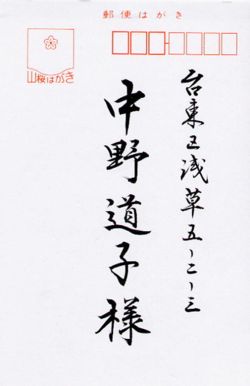 郵便はがき
山桜はがき
台東区浅草五-二-三
中野道子様